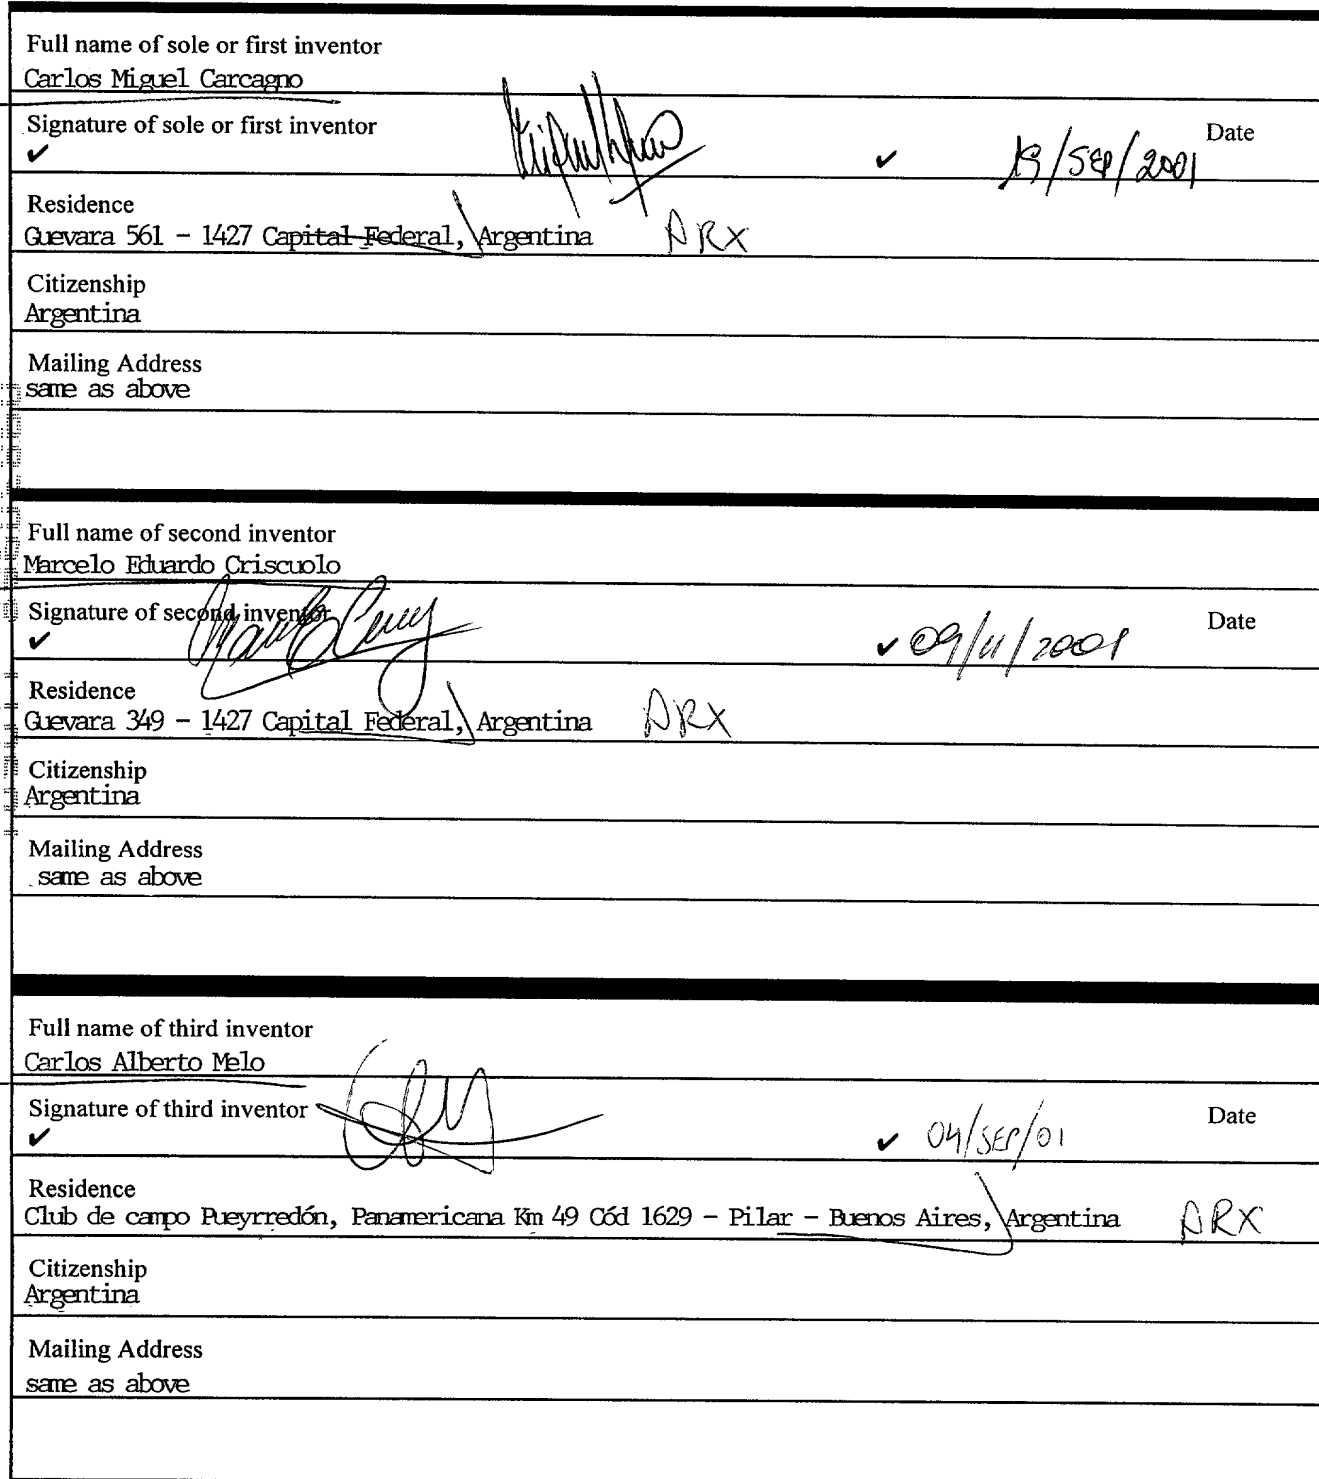 Full name of sole or first inventor
Carlos Miguel Carcagno
Signature of sole or first inventor
Date
✔ ✔ 19/SEP/2001
Residence
Guevara 561 - 1427 Capital Federal, Argentina ARX
Citizenship
Argentina
Mailing Address
same as above
Full name of second inventor
Marcelo Eduardo Criscuolo
Signature of second inventor
Date
✔ ✔ 09/11/2001
Residence
Guevara 349 - 1427 Capital Federal, Argentina ARX
Citizenship
Argentina
Mailing Address
same as above
Full name of third inventor
Carlos Alberto Melo
Signature of third inventor
Date
✔ ✔ 04/SEP/01
Residence
Club de campo Pueyrredón, Panamericana Km 49 Cód 1629 - Pilar - Buenos Aires, Argentina ARX
Citizenship
Argentina
Mailing Address
same as above